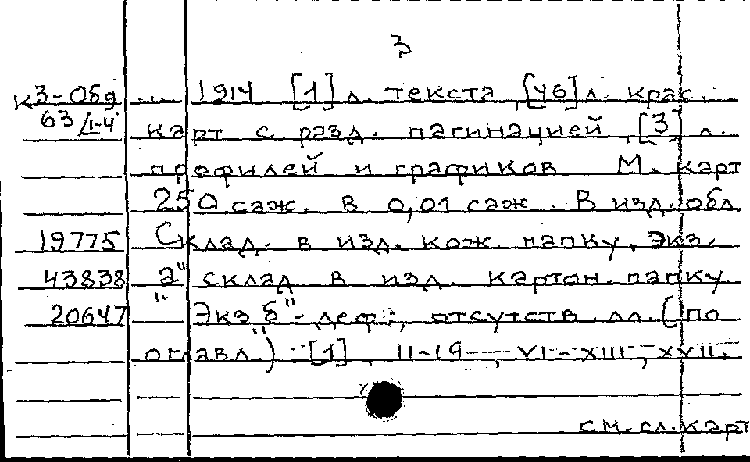 3
К3-Обд ... 1914 [1] л. текста, [46] л. крас.
63/1-4 карт с разд. пагинацией, [3] л.
профилей и графиков М. карт
250 саж. в 0,01 саж. В изд. обл
19775 Склад. в изд. кож. папку. Экз.
43838 "а" склад в изд. картон. папку
20647 Экз "б" - деф.; отсутств. лл. ("по
оглавл.") : [1], 11-19, VI-XIII, XVII.
см. сл. карт